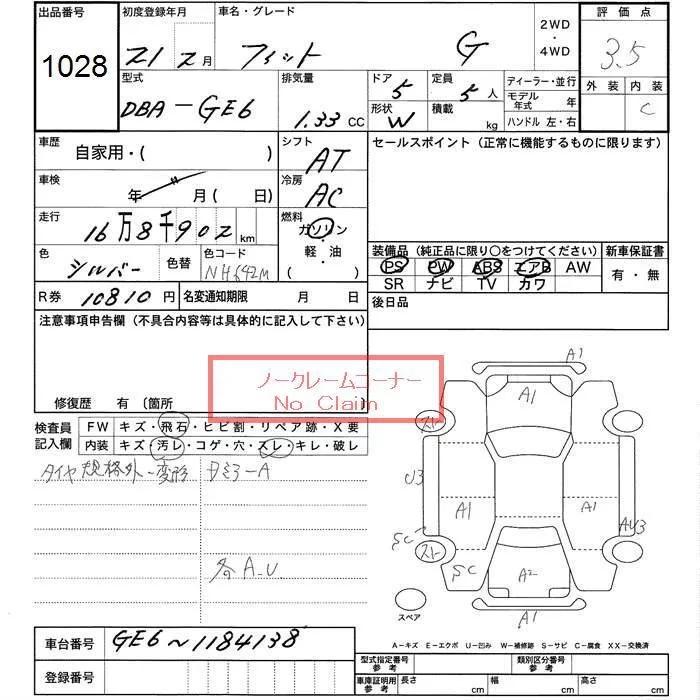 出品番号
1028
初度登録年月
21 2 月
車名・グレード
フィット G
2WD
・
4WD
評価点
3.5
外装 内装
C
型式
DBA-GE6
排気量
1.33 CC
ドア
5
定員
5 人
形状
W
積載
kg
ディーラー・並行
モデル年式 年
ハンドル 左・右
車歴
自家用・( )
シフト
AT
車検
年 月( 日)
冷房
AC
走行
16万8千902 km
燃料
ガソリン
・
軽・油
( )
色
シルバー
色替
色コード
NH642M
R券 10810 円
名変通知期限 月 日
セールスポイント (正常に機能するものに限ります)
装備品 (純正品に限り○をつけてください)
PS PW ABS エアB AW
SR ナビ TV カワ
新車保証書
有・無
後日品
注意事項申告欄 (不具合内容等は具体的に記入して下さい)
修復歴 有 (箇所
ノークレームコーナー
No Claim
検査員
記入欄
FW キズ・飛石・ヒビ割・リペア跡・X要
内装 キズ・汚レ・コゲ・穴・スレ・キレ・破レ
タイヤ規格外-変形
Dミラ-A
各A.U
A1
A1
スト
U3
A1
A1
AU3
SC
スト
SC
A2
A1
スペア
A-キズ E-エクボ U-凹み W-補修跡 S-サビ C-腐食 XX-交換済
車台番号 GE6~1184138
登録番号
型式指定番号
参考
類別区分番号
参考
車庫証明用
参考
長さ cm
幅 cm
高さ cm